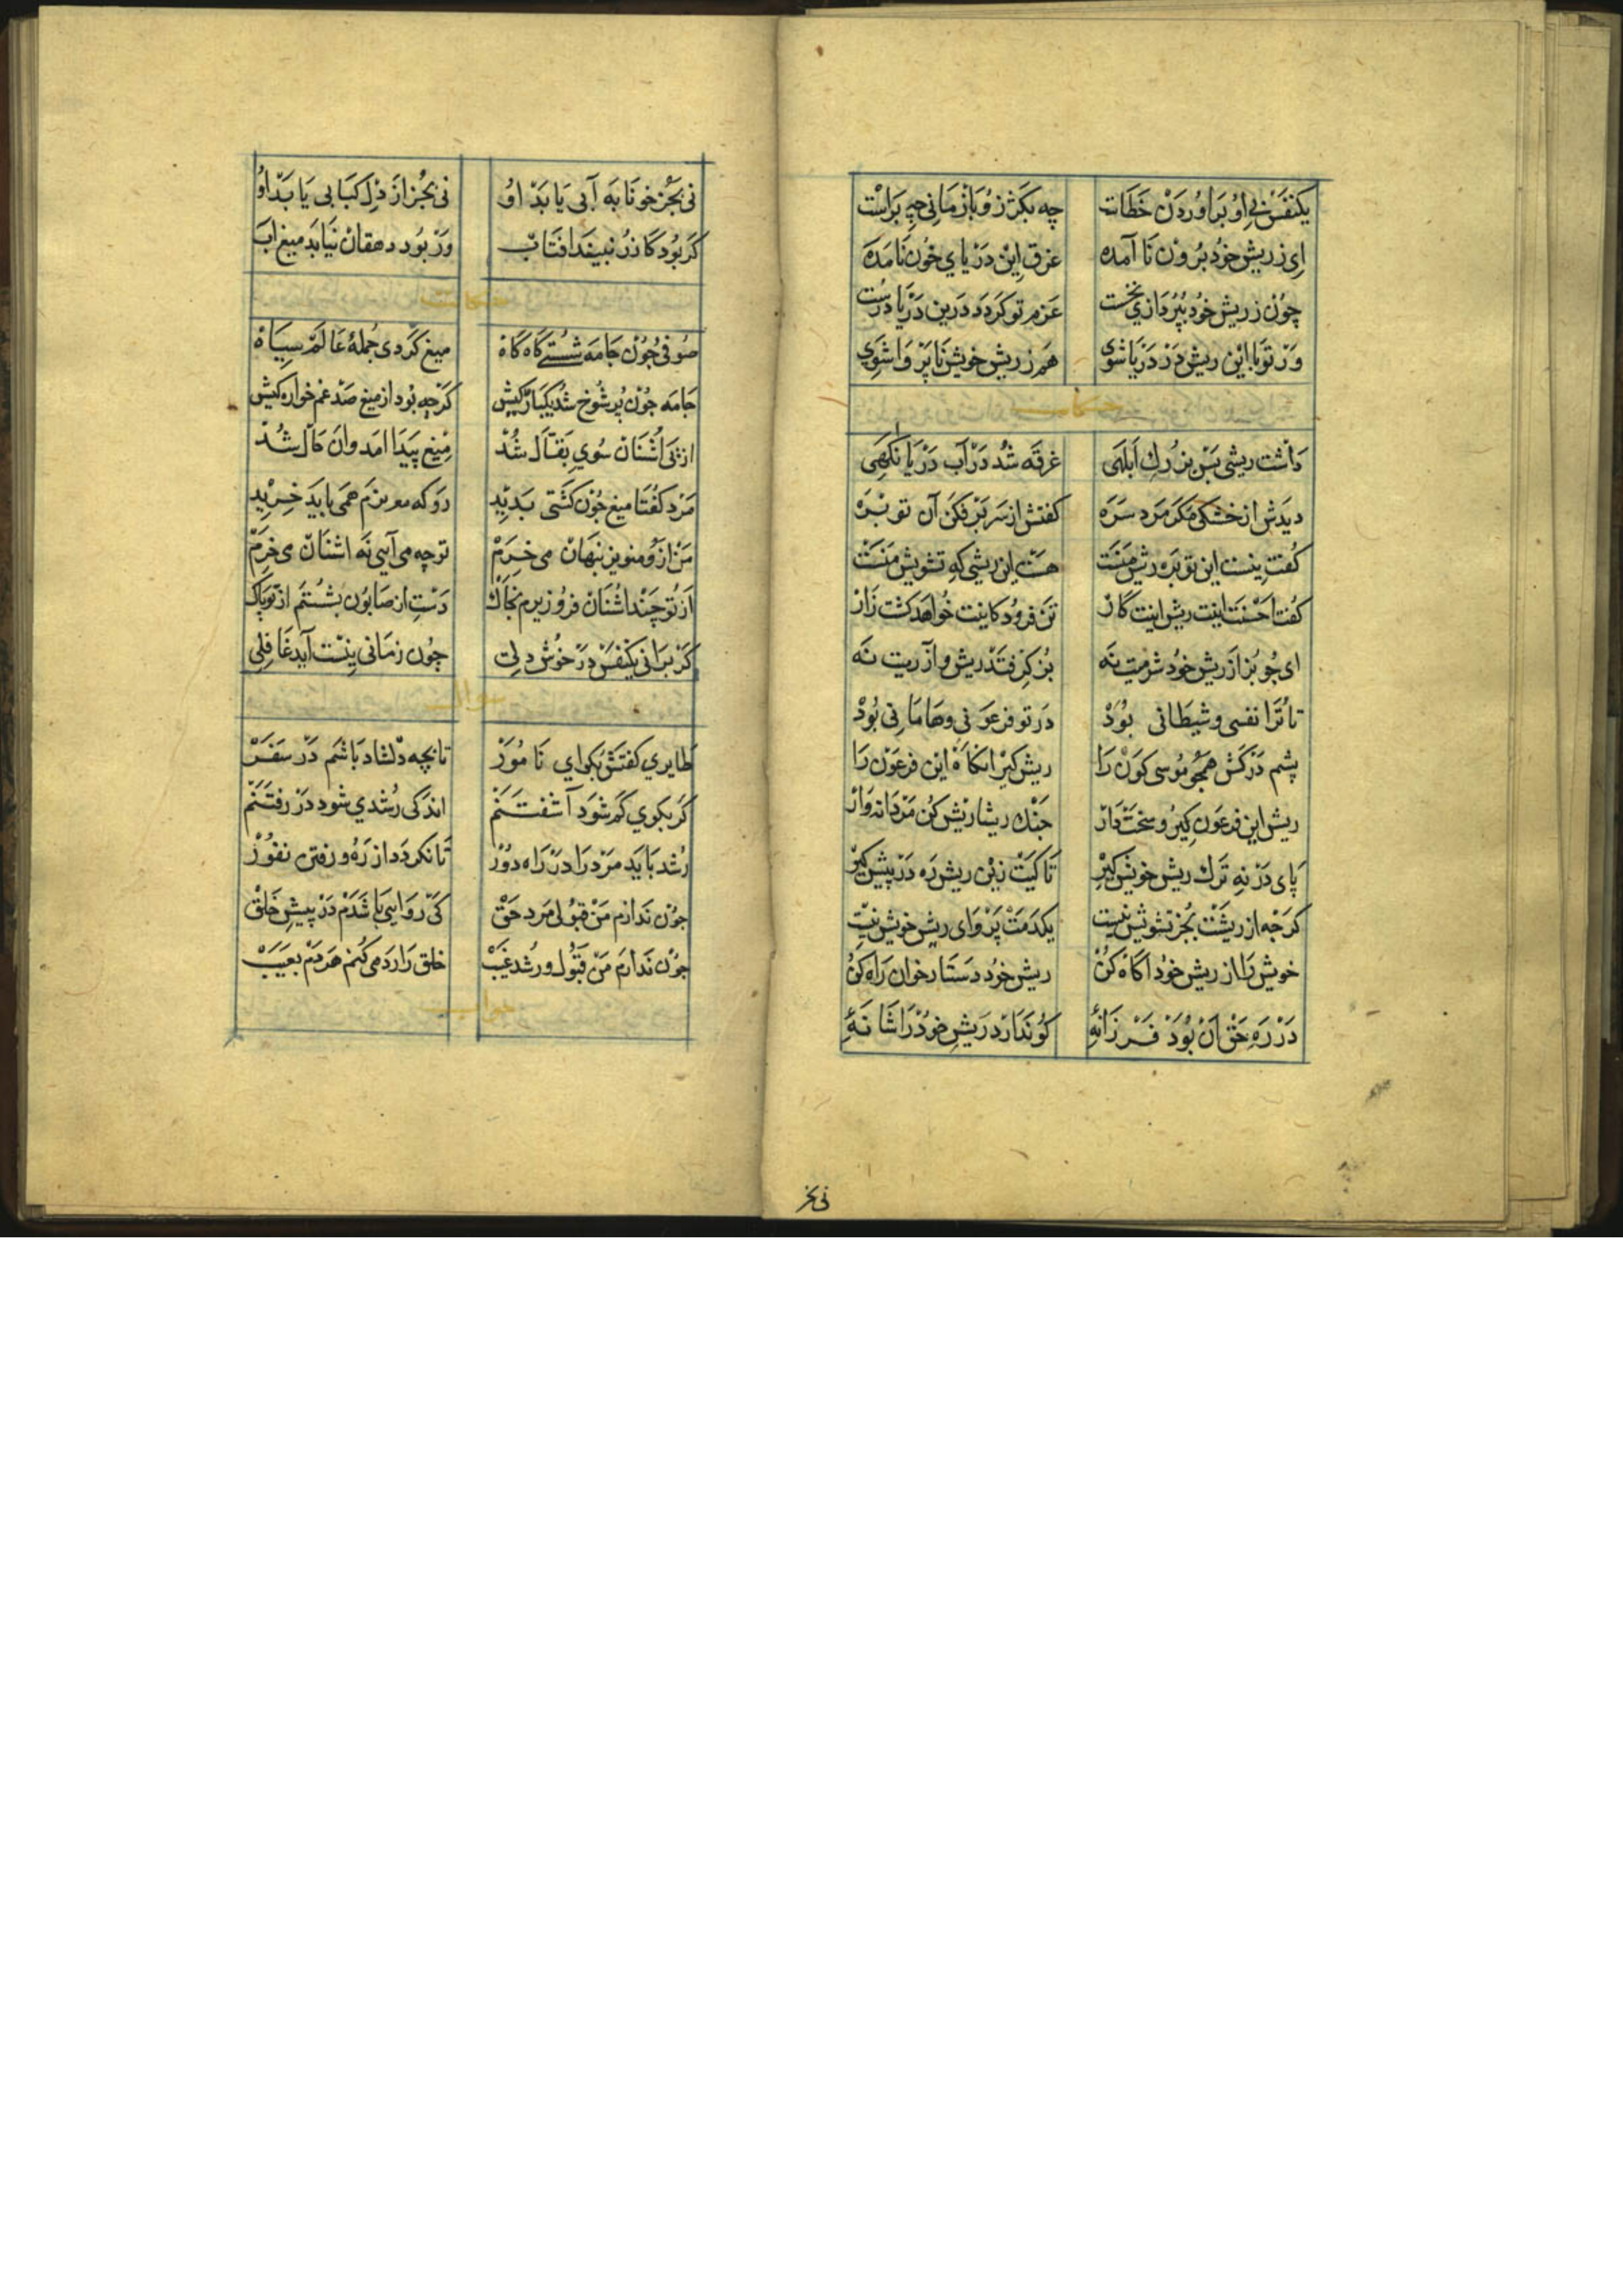 یکنفس بی او براوردن خطات چه بکژ زو بازمانی چه براست
ای ز ریش خود برون نا آمده غرق این دریای خون نامده
چون ز ریش خود بپردازی نخست عزم تو کردد درین دریا درست
ور تو با این ریش در دریا شوی هم ز ریش خویش ناپروا شوی
داشت ریشی بس بزرک ابلهی غرقه شد در آب دریا نکهی
دیدش از خشکی مکر مرد سره کفتش از سر برفکن آن توبره
کفت نیست این توبره ریش منست هست این ریشی که تشویش منست
کفت احسنت اینت ریش اینت کار تن فرو ده کاینت خواهد کشت زار
ای چو بز از ریش خود شرمیت نه بر کرفته ریش و آزرمیت نه
تا ترا نفسی و شیطانی بود در تو فرعونی و هامانی بود
پشم درکش همچو موسی کون را ریش کیر انکاه این فرعون را
ریش این فرعون کیر و سخت دار جنک ریشاریش کن مردانه وار
پای در نه ترک ریش خویش کیر تا کیت زین ریش ره در پیش کیر
کرجه از ریشت بجز تشویش نیست یکدمت پروای ریش خویش نیست
خویش را از ریش خود اکاه کن ریش خود دستارخوان راه کن
در ره حق آن بود فرزانهٔ کو ندارد ریش خود را شانهٔ
نی بجز
نی بجز خونابه آبی یابد او نی بجز از دل کبابی یابد او
کر بود کازر نبیند افتاب ور بود دهقان نیابد میغ آب
صوفی چون جامه شستی کاه کاه میغ کردی جملهٔ عالم سیاه
جامه چون پر شوخ شد یکبارکیش کرچه بود از میغ صد غم خوارکیش
از پی اشنان سوی بقال شد میغ پیدا امد و آن حال شد
مرد کفتا میغ چون کشتی بدید رو که مویزم همی باید خرید
من ازو مویز پنهان می خرم تو چه می آیی نه اشنان می خرم
از تو چند اشنان فرو ریزم بخاک دست از صابون بشستم از تو پاک
کر برانی یکنفس در خوش دلت چون زمانی نیست آید غافلی
سوال
طایری کفتش بکو ای نامور تا بچه دلشاد باشم در سفر
کر بکوی کم شود آشفتنم اندکی رشدی شود در رفتنم
رشد باید مرد را در راه دور تا نکردد از ره و رفتن نفور
چون ندارم من قبول مرد حق کی روایی باشدم در پیش خلق
چون ندارم من قبول و رشد غیب خلق را رد می کنم هر دم بعیب
جواب